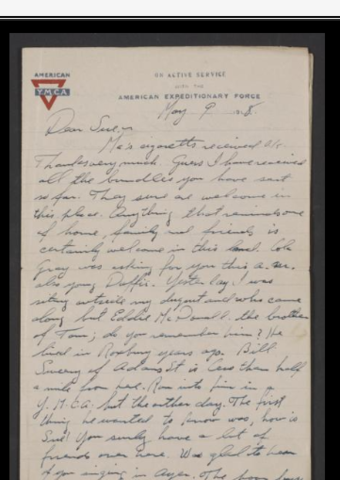 AMERICAN
YMCA
ON ACTIVE SERVICE
WITH THE
AMERICAN EXPEDITIONARY FORCE
May 9
Dear
cigaretts received
Thanks very much. Guess I have received
all the bundles you have sent
so far. They sure are welcome in
this place. Anything that reminds one
of home, family and friends is
certainly welcome in this land. Col.
Gray was asking for you this a.m.
also young Duffy. Yesterday I was
sitting outside my dugout and who came
along but Eddie McDowall, the brother
of Tom; do you remember him? He
lived in Roxbury years ago. Bill
of Adams St is less than half
a mile from here. Ran into him in a
Y.M.C.A. hut the other day. The first
thing he wanted to know was, how is
You surely have a lot of
friends over here. Was glad to hear
of you singing in Ayer. The boys